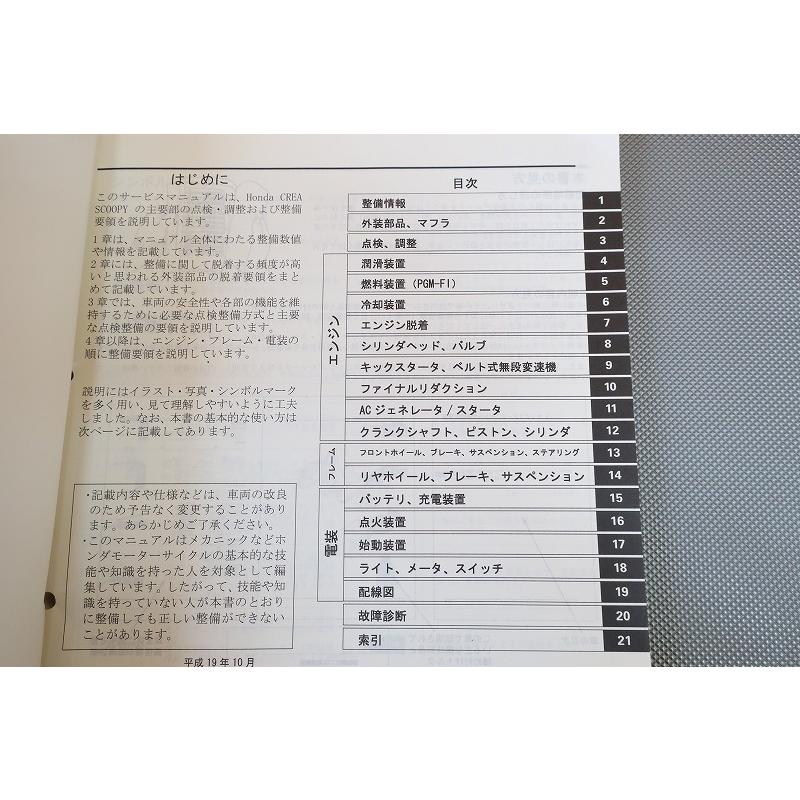 はじめに
このサービスマニュアルは、Honda CREA
SCOOPY の主要部の点検・調整および整備
要領を説明しています。
1 章は、マニュアル全体にわたる整備数値
や情報を記載しています。
2 章には、整備に関して脱着する頻度が高
いと思われる外装部品の脱着要領をまと
めて記載しています。
3 章では、車両の安全性や各部の機能を維
持するために必要な点検整備方式と主要
な点検整備の要領を説明しています。
4 章以降は、エンジン・フレーム・電装の
順に整備要領を説明しています。
説明にはイラスト・写真・シンボルマーク
を多く用い、見て理解しやすいように工夫
しました。なお、本書の基本的な使い方は
次ページに記載してあります。
・記載内容や仕様などは、車両の改良
のため予告なく変更することがあり
ます。あらかじめご了承ください。
・このマニュアルはメカニックなどホ
ンダモーターサイクルの基本的な技
能や知識を持った人を対象として編
集しています。したがって、技能や知
識を持っていない人が本書のとおり
に整備しても正しい整備ができない
ことがあります。
平成 19 年 10 月
目次
整備情報 1
外装部品、マフラ 2
点検、調整 3
エンジン
潤滑装置 4
燃料装置 (PGM-FI) 5
冷却装置 6
エンジン脱着 7
シリンダヘッド、バルブ 8
キックスタータ、ベルト式無段変速機 9
ファイナルリダクション 10
AC ジェネレータ / スタータ 11
クランクシャフト、ピストン、シリンダ 12
フレーム
フロントホイール、ブレーキ、サスペンション、ステアリング 13
リヤホイール、ブレーキ、サスペンション 14
電装
バッテリ、充電装置 15
点火装置 16
始動装置 17
ライト、メータ、スイッチ 18
配線図 19
故障診断 20
索引 21